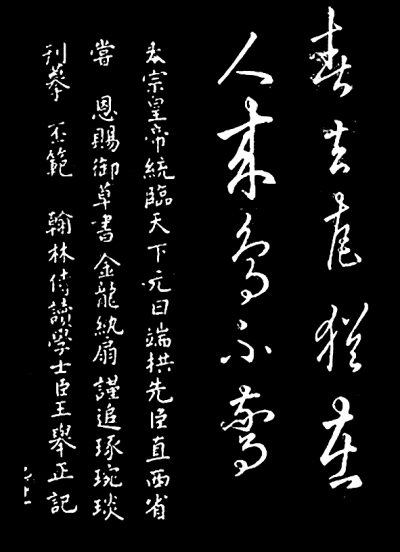 春去花猶在
人來鳥不驚
太宗皇帝統臨天下元日端拱先臣直西省
嘗 恩賜御草書金龍紈扇謹追琢琬琰
刊摹 丕範 翰林侍讀學士臣王舉正記